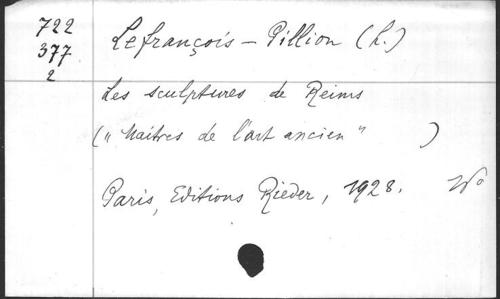 722
377
2
Lefrançois - Pillion (L.)
Les sculptures de Reims
("Maitres de l'art ancien" )
Paris, Editions Rieder, 1928.